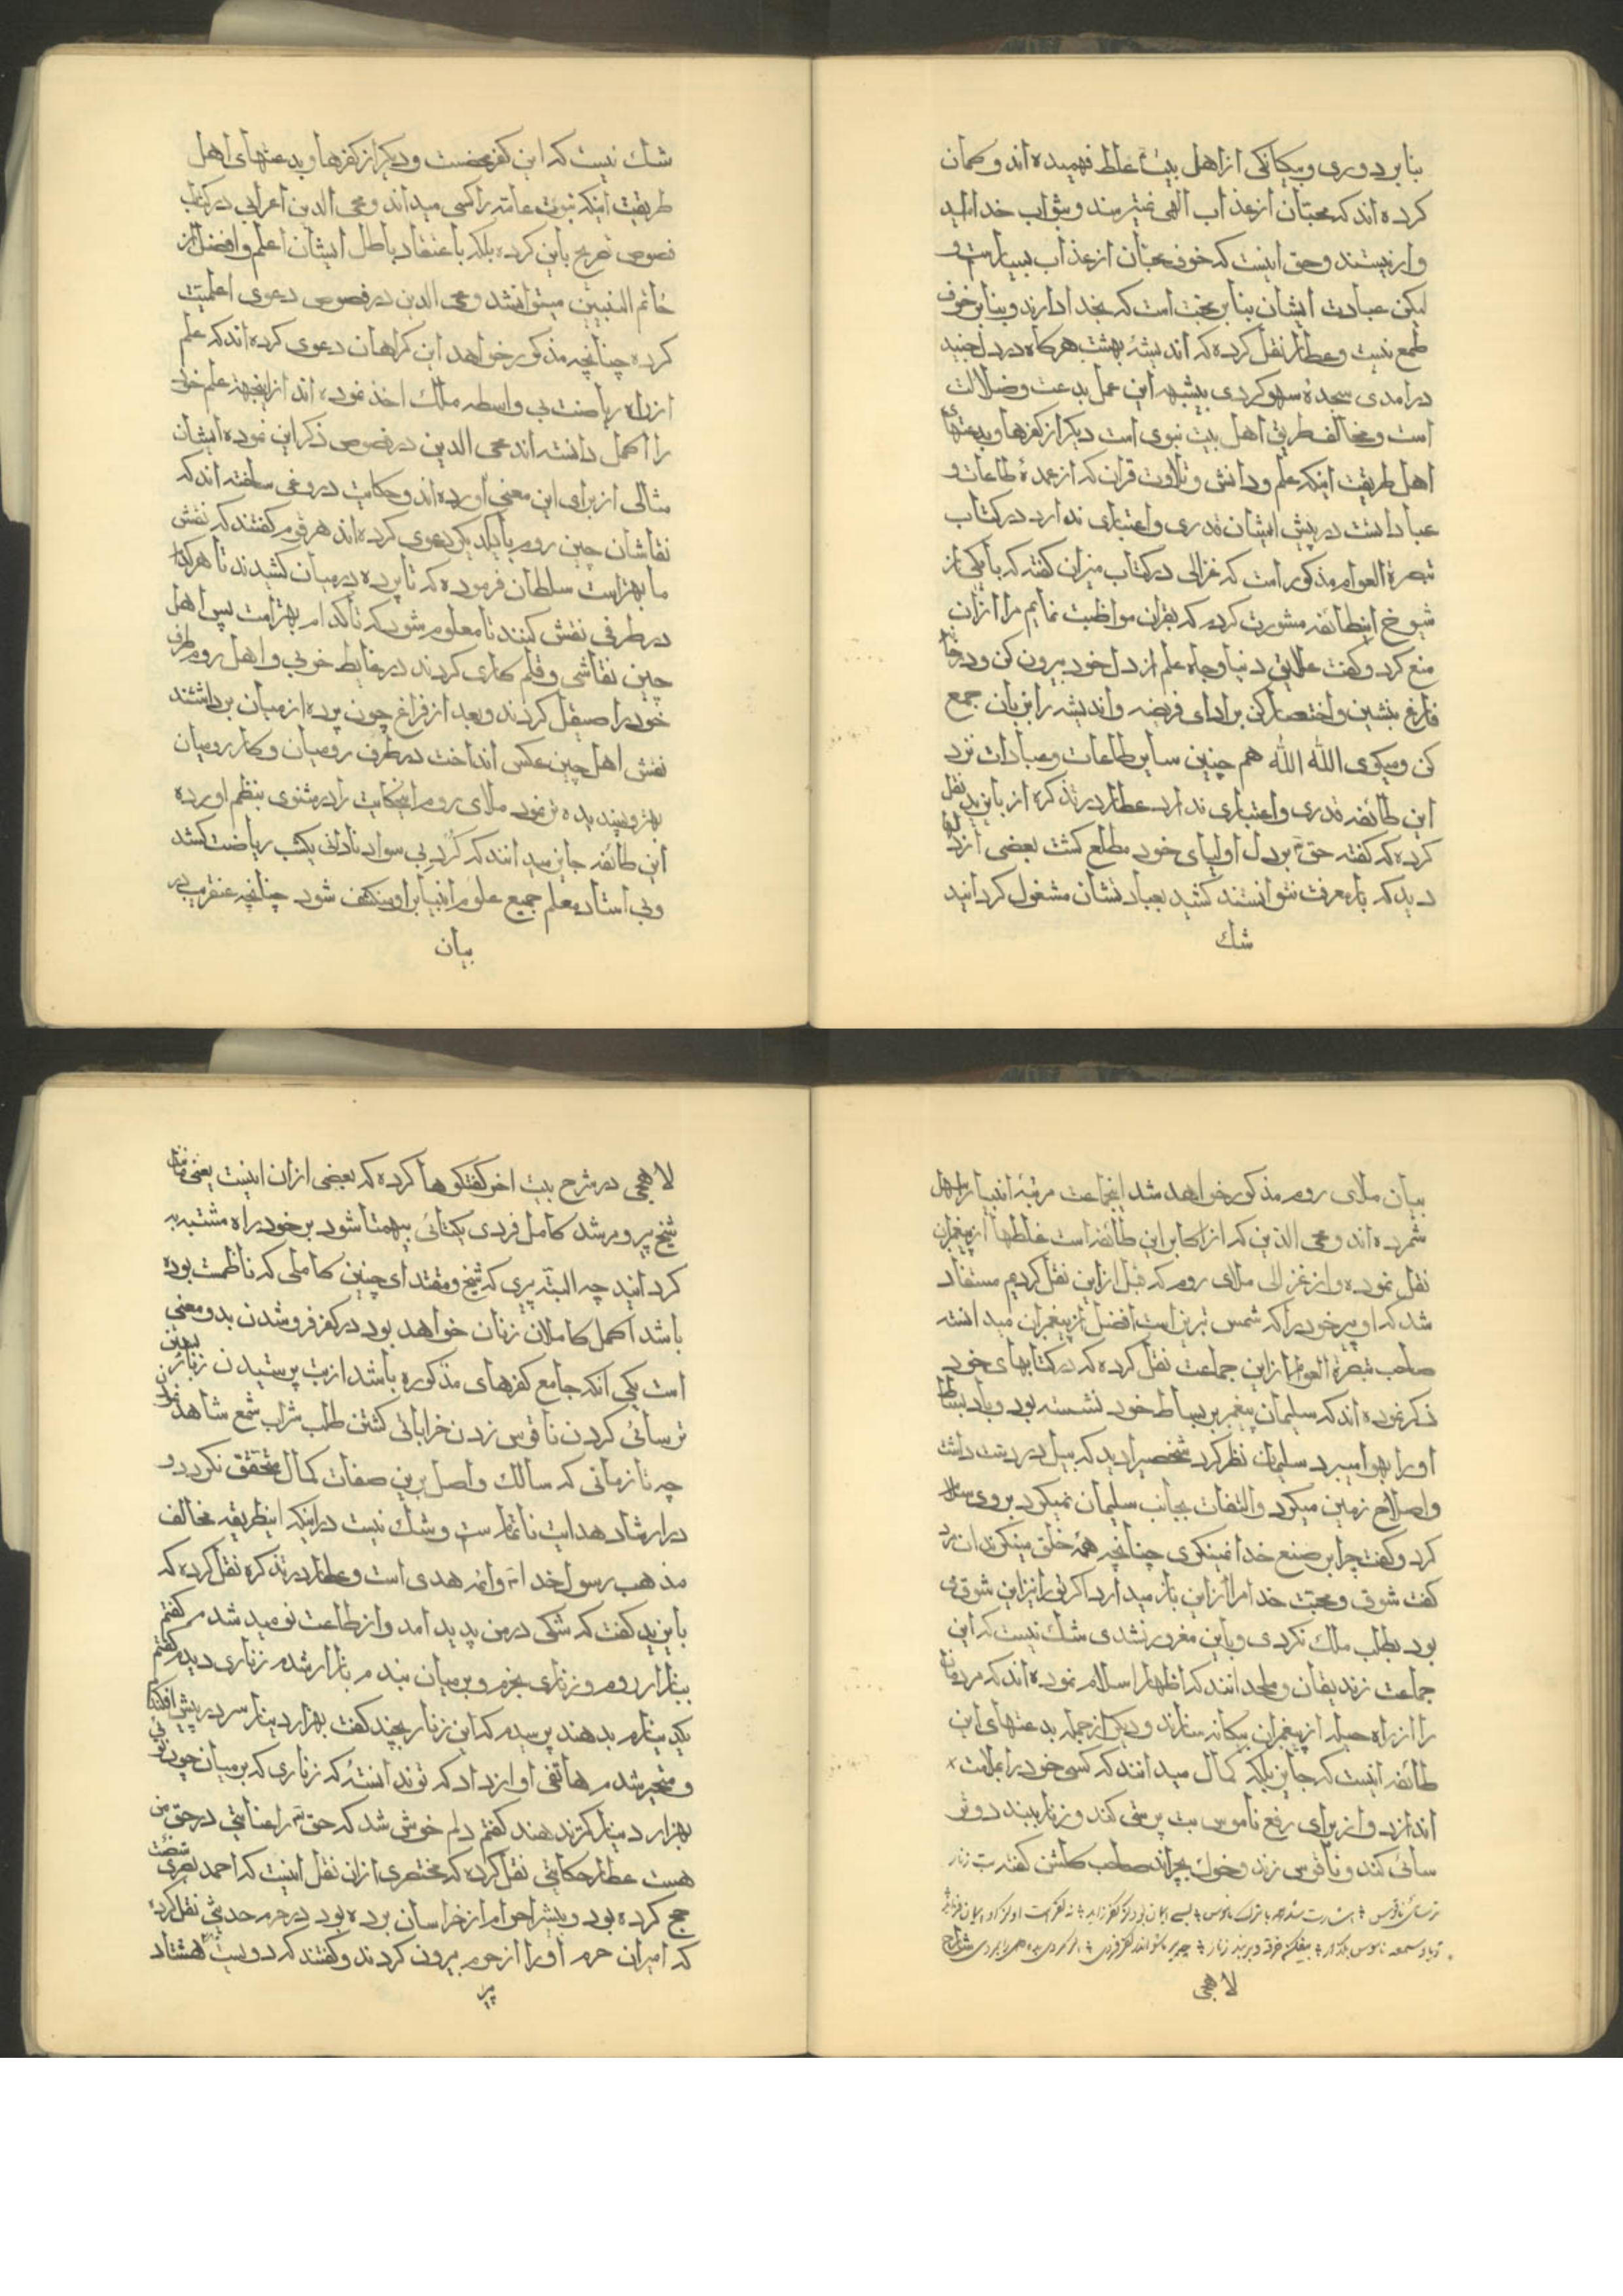 بنابر دوری و بیکانکی از اهل بیت غلط فهمیده اند و کمان
کرده اند که محبّان از عذاب الهی نمیترسند و بثواب خدا امید
وار نیستند و حق اینست که خوف محبان از عذاب بسیار است و
لیکن عبادت ایشان بنابر محبت است که بخدا دارند و بنابر خوف
طمع نیست و عطار نقل کرده که اندیشهٔ بهشت هرکاه در دل جنید
درامدی سجدهٔ سهو کردی بیشبهه این عمل بدعت و ضلالت
است و مخالف طریق اهل بیت نبوی است دیکر از کفرها و بدعتهای
اهل طریقت اینکه علم و دانش و تلاوت قران که از عمدهٔ طاعات و
عبادانست در پیش ایشان قدری و اعتباری ندارد در کتاب
تبصرة العوام مذکور است که غزالی در کتاب میزان کفته که با یکی از
شیوخ اینطائفه مشورت کردم که بقران مواظبت نمایم مرا ازان
منع کرد و کفت علایق دنیا و جاه علم از دل خود بیرون کن و در خانهٔ
فارغ بنشین و اختصار کن بر ادای فریضه و اندیشه را بزبان جمع
کن و میکوی الله الله هم چنین سایر طاعات و عبادات نزد
این طائفه قدری و اعتباری ندارد عطار در تذکره از بایزید نقل
کرده که کفته حق تم بر دل اولیای خود مطلع کشت بعضی از
دید که بار معرفت نتوانستند کشید بعبادتشان مشغول کردانید
شك
شك نیست که این کفر محضست و دیکر از کفرها و بدعتهای اهل
طریقت اینکه نبوت عامه را کسی میداند و محی الدین اعرابی در کتاب
فصوص تصریح باین کرده بلکه باعتقاد باطل ایشان اعلم و افضل از
خاتم النبیین میتوانشد و محی الدین در فصوص دعوی اعلمیت
کرده چنانچه مذکور خواهد این کمراهان دعوی کرده اند که علم
از راه ریاضت بی واسطه ملك اخذ نموده اند ازاینجهة علم خود
را اکمل دانسته اند محی الدین در فصوص ذکر این نموده ایشان
مثالی از برای این معنی اورده اند و حکایت دروغی ساخته اند که
نقاشان چین روم بایکدیکر دعوی کرده اند هر قوم کفتند که نقش
ما بهتراست سلطان فرموده که تا پرده در میان کشیدند تا هرکدام
در طرفی نقش کنند تا معلوم شود که تا کدام بهتر است پس اهل
چین نقاشی و قلم کاری کردند در غایط خوبی و اهل روم طرف
خود را صیقل کردند و بعد از فراغ چون پرده از میان برداشتند
نقش اهل چین عکس انداخت در طرف رومیان و کار رومیان
بهتر و پسندیده تر نمود ملای روم اینحکایت را در مثنوی بنظم اورده
این طائفه جایز میدانند که کُردِ بی سواد نادانی یکشب ریاضت کشد
و بی استاد معلم جمیع علوم انبیا بر او منکشف شود چنانچه عنقریب در
بیان
بیان ملای روم مذکور خواهد شد اینجماعت مرتبهٔ انبیا را سهل
شمرده اند و محی الدین که از اکابر این طائفه است غلطها از پیغمبران
نقل نموده و از غزالی ملای روم که قبل ازاین نقل کردیم مستفاد
شد که او پیر خود را که شمس تبریز است افضل از پیغمبران میدانسته
صاحب تبصرة العوام ازاین جماعت نقل کرده که در کتابهای خود
ذکر نموده اند که سلیمان پیغمبر بر بساط خود نشسته بود و باد بساط
او را بهوا میبرد سلیمان نظر کرد شخصیرا دید که بیل در دست داشت
و اصلاح زمین میکرد و التفات بجانب سلیمان نمیکرد بر وی سلام
کرد و کفت چرا بر صنع خدا نمینکری چنانچه همهٔ خلق مینکرند ان مرد
کفت شوق و محبت خدا مرا ازاین باز میدارد اکر تو را نیز این شوق می
بود بطلب ملك نکردی و باین مغرور نشدی شك نیست که این
جماعت زندیقان و ملحدانند که اظهار اسلام نموده اند که مردمان
را از راه حیله از پیغمبران بیکانه سازند و دیکر از جمله بدعتهای این
طائفه اینست که جایز بلکه کمال میدانند که کسی خود را بملامت
اندازد و از برای رفع ناموس بت پرستی کند و زنار ببندد و تر
سائی کند و ناقوس زند و خوك بچراند صاحب کلشن کفته بت زنار
ترسائی ناقوس اشارت شد همه با ترك ناموس
لاهجی
لاهجی در شرح بیت اخر کفتکوها کرده که بعضی ازان اینست یعنی
شیخ پیر و مرشد کامل فردی یکتائی بیهمتا شود بر خود راه مشتبه
کردانید چه البتّه پیری که شیخ و مقتدای چنین کاملی که ناظمست بوده
باشد اکمل کاملان زنان خواهد بود در کفر فرو شدن بدو معنی
است یکی انکه جامع کفرهای مذکوره باشد از بت پرستیدن زنار بستن
ترسائی کردن ناقوس زدن خراباتی کشتن طلب شراب شمع شاهد
چه تا زمانی که سالك واصل برین صفات کمال متحقق نکردد و
در ارشاد هدایت ناتمام است و شك نیست دراینکه اینطریقه مخالف
مذهب رسول خدا و ائمه هدی است و عطار در تذکره نقل کرده که
بایزید کفت که شکی درمن پدید امد و از طاعت نومید شدم کفتم
ببازار روم و زناری بخرم و بر میان بندم بازار شدم زناری دیدم کفتم
بیکدینارم بدهند پرسیدم که این زنار بچند کفت بهزار دینار سر در پیش افکندم
و متحیر شدم هاتفی اواز داد که تو ندانستهٔ که زناری که بر میان چون توئی
بهزار دینار کمتر ندهند کفتم دلم خوش شد که حق تم را عنایتی در حق من
هست عطار حکایتی نقل کرده که مختصری ازان نقل اینست که احمد نصری شصت
حج کرده بود و بیشتر احرام از خراسان برده بود در حرم حدیثی نقل کرده
که امیران حرم او را از حرم بیرون کردند و کفتند که دویست هشتاد
پیر